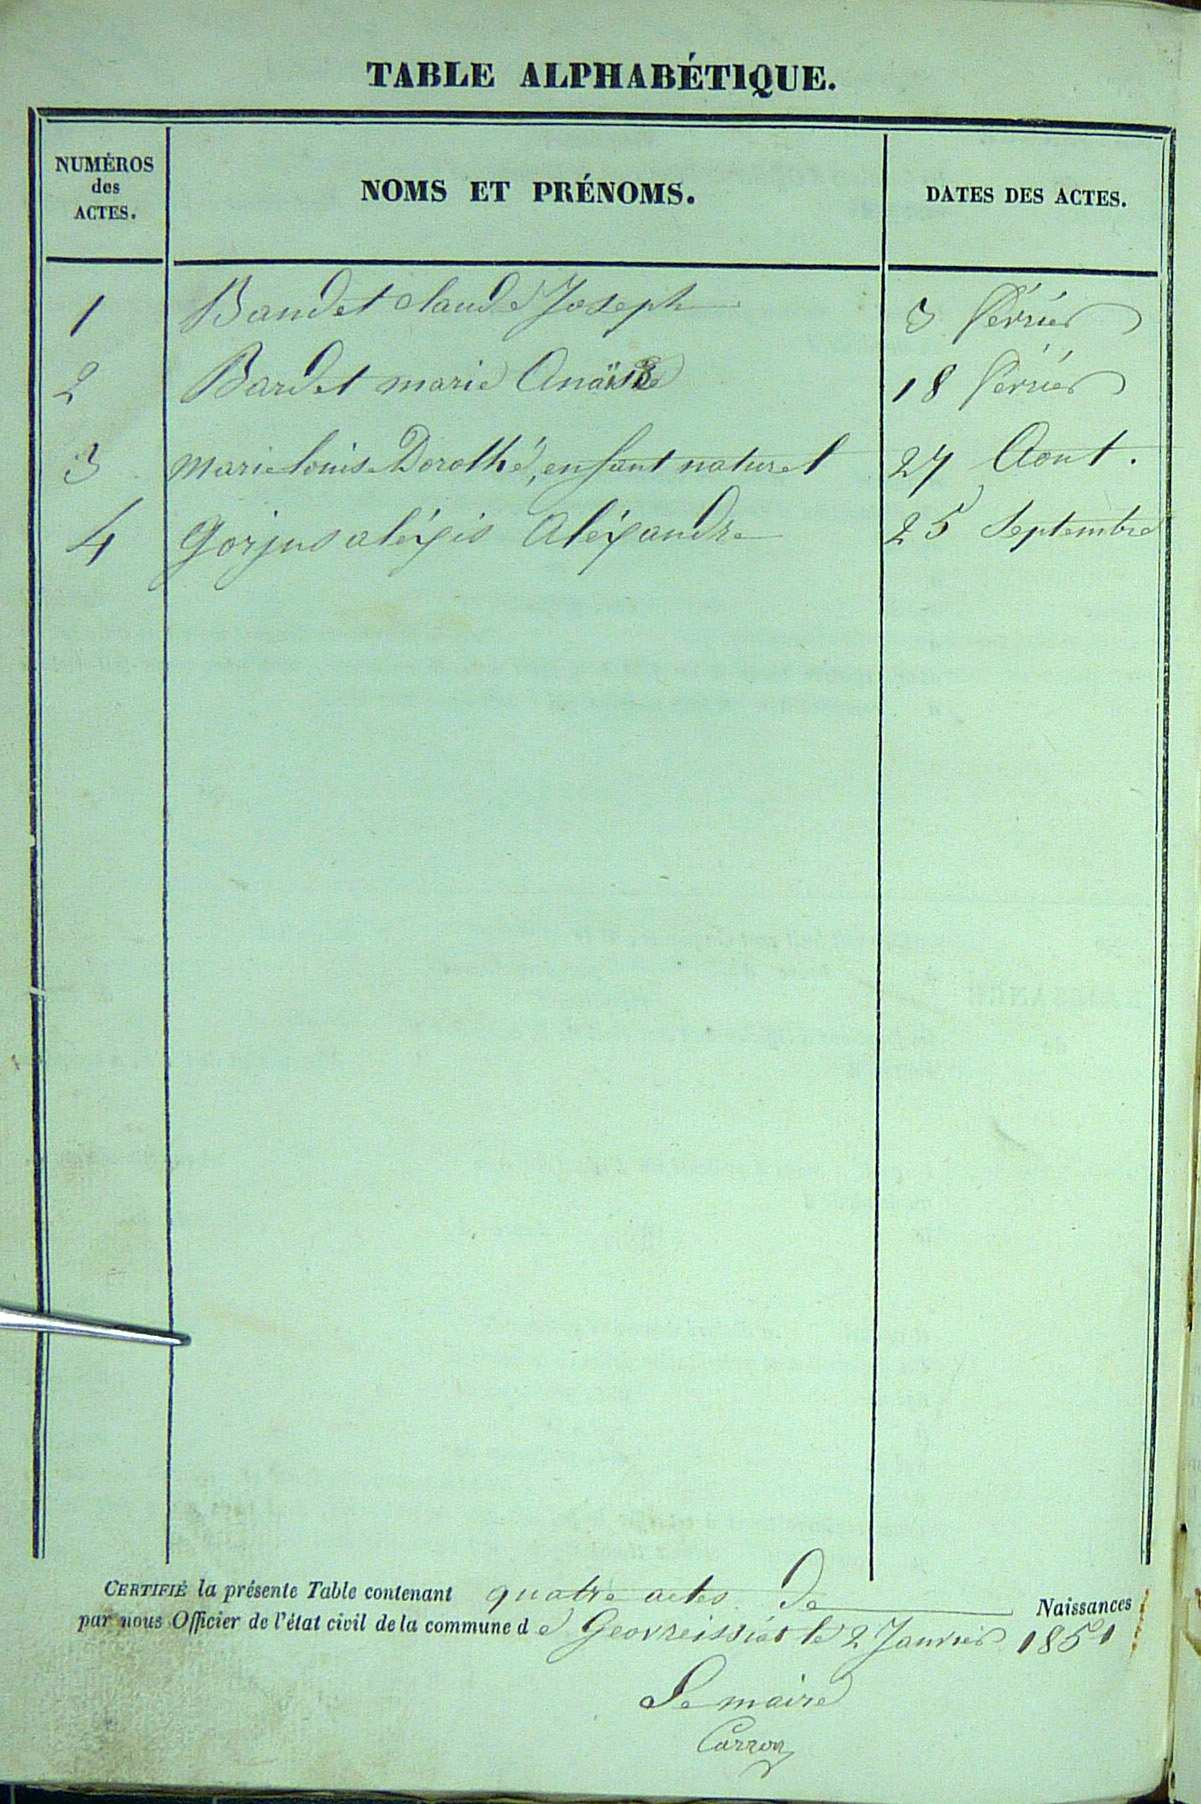 TABLE ALPHABÉTIQUE.
NUMÉROS
des
ACTES.
NOMS ET PRÉNOMS.
DATES DES ACTES.
1 Bandet claude Joseph 3 Février
2 Bardet marie Anaïse 18 Février
3 marie louise Dorothé, enfant naturel 27 Aout.
4 Gorjus aléxis Aléxandre 25 Septembre
CERTIFIÉ la présente Table contenant quatre actes de Naissances
par nous Officier de l'état civil de la commune d e Geovreissiat le 2 Janvier 1851
Le maire
Carron